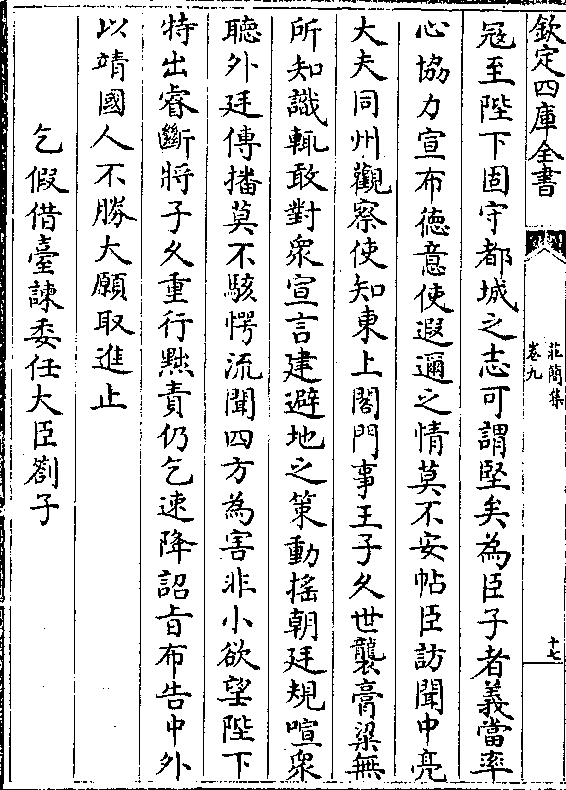 欽定四庫全書
莊簡集
卷九
十七
冦至陛下固守都城之志可謂堅矣為臣子者義當率
心協力宣布徳意使遐邇之情莫不安帖臣訪聞中亮
大夫同州觀察使知東上閤門事王子久世襲膏粱無
所知識輒敢對衆宣言建避地之策動揺朝廷規喧衆
聽外廷傳播莫不駭愕流聞四方為害非小欲望陛下
特出睿斷將子久重行黜責仍乞速降詔旨布告中外
以靖國人不勝大願取進止
乞假借臺諫委任大臣劄子